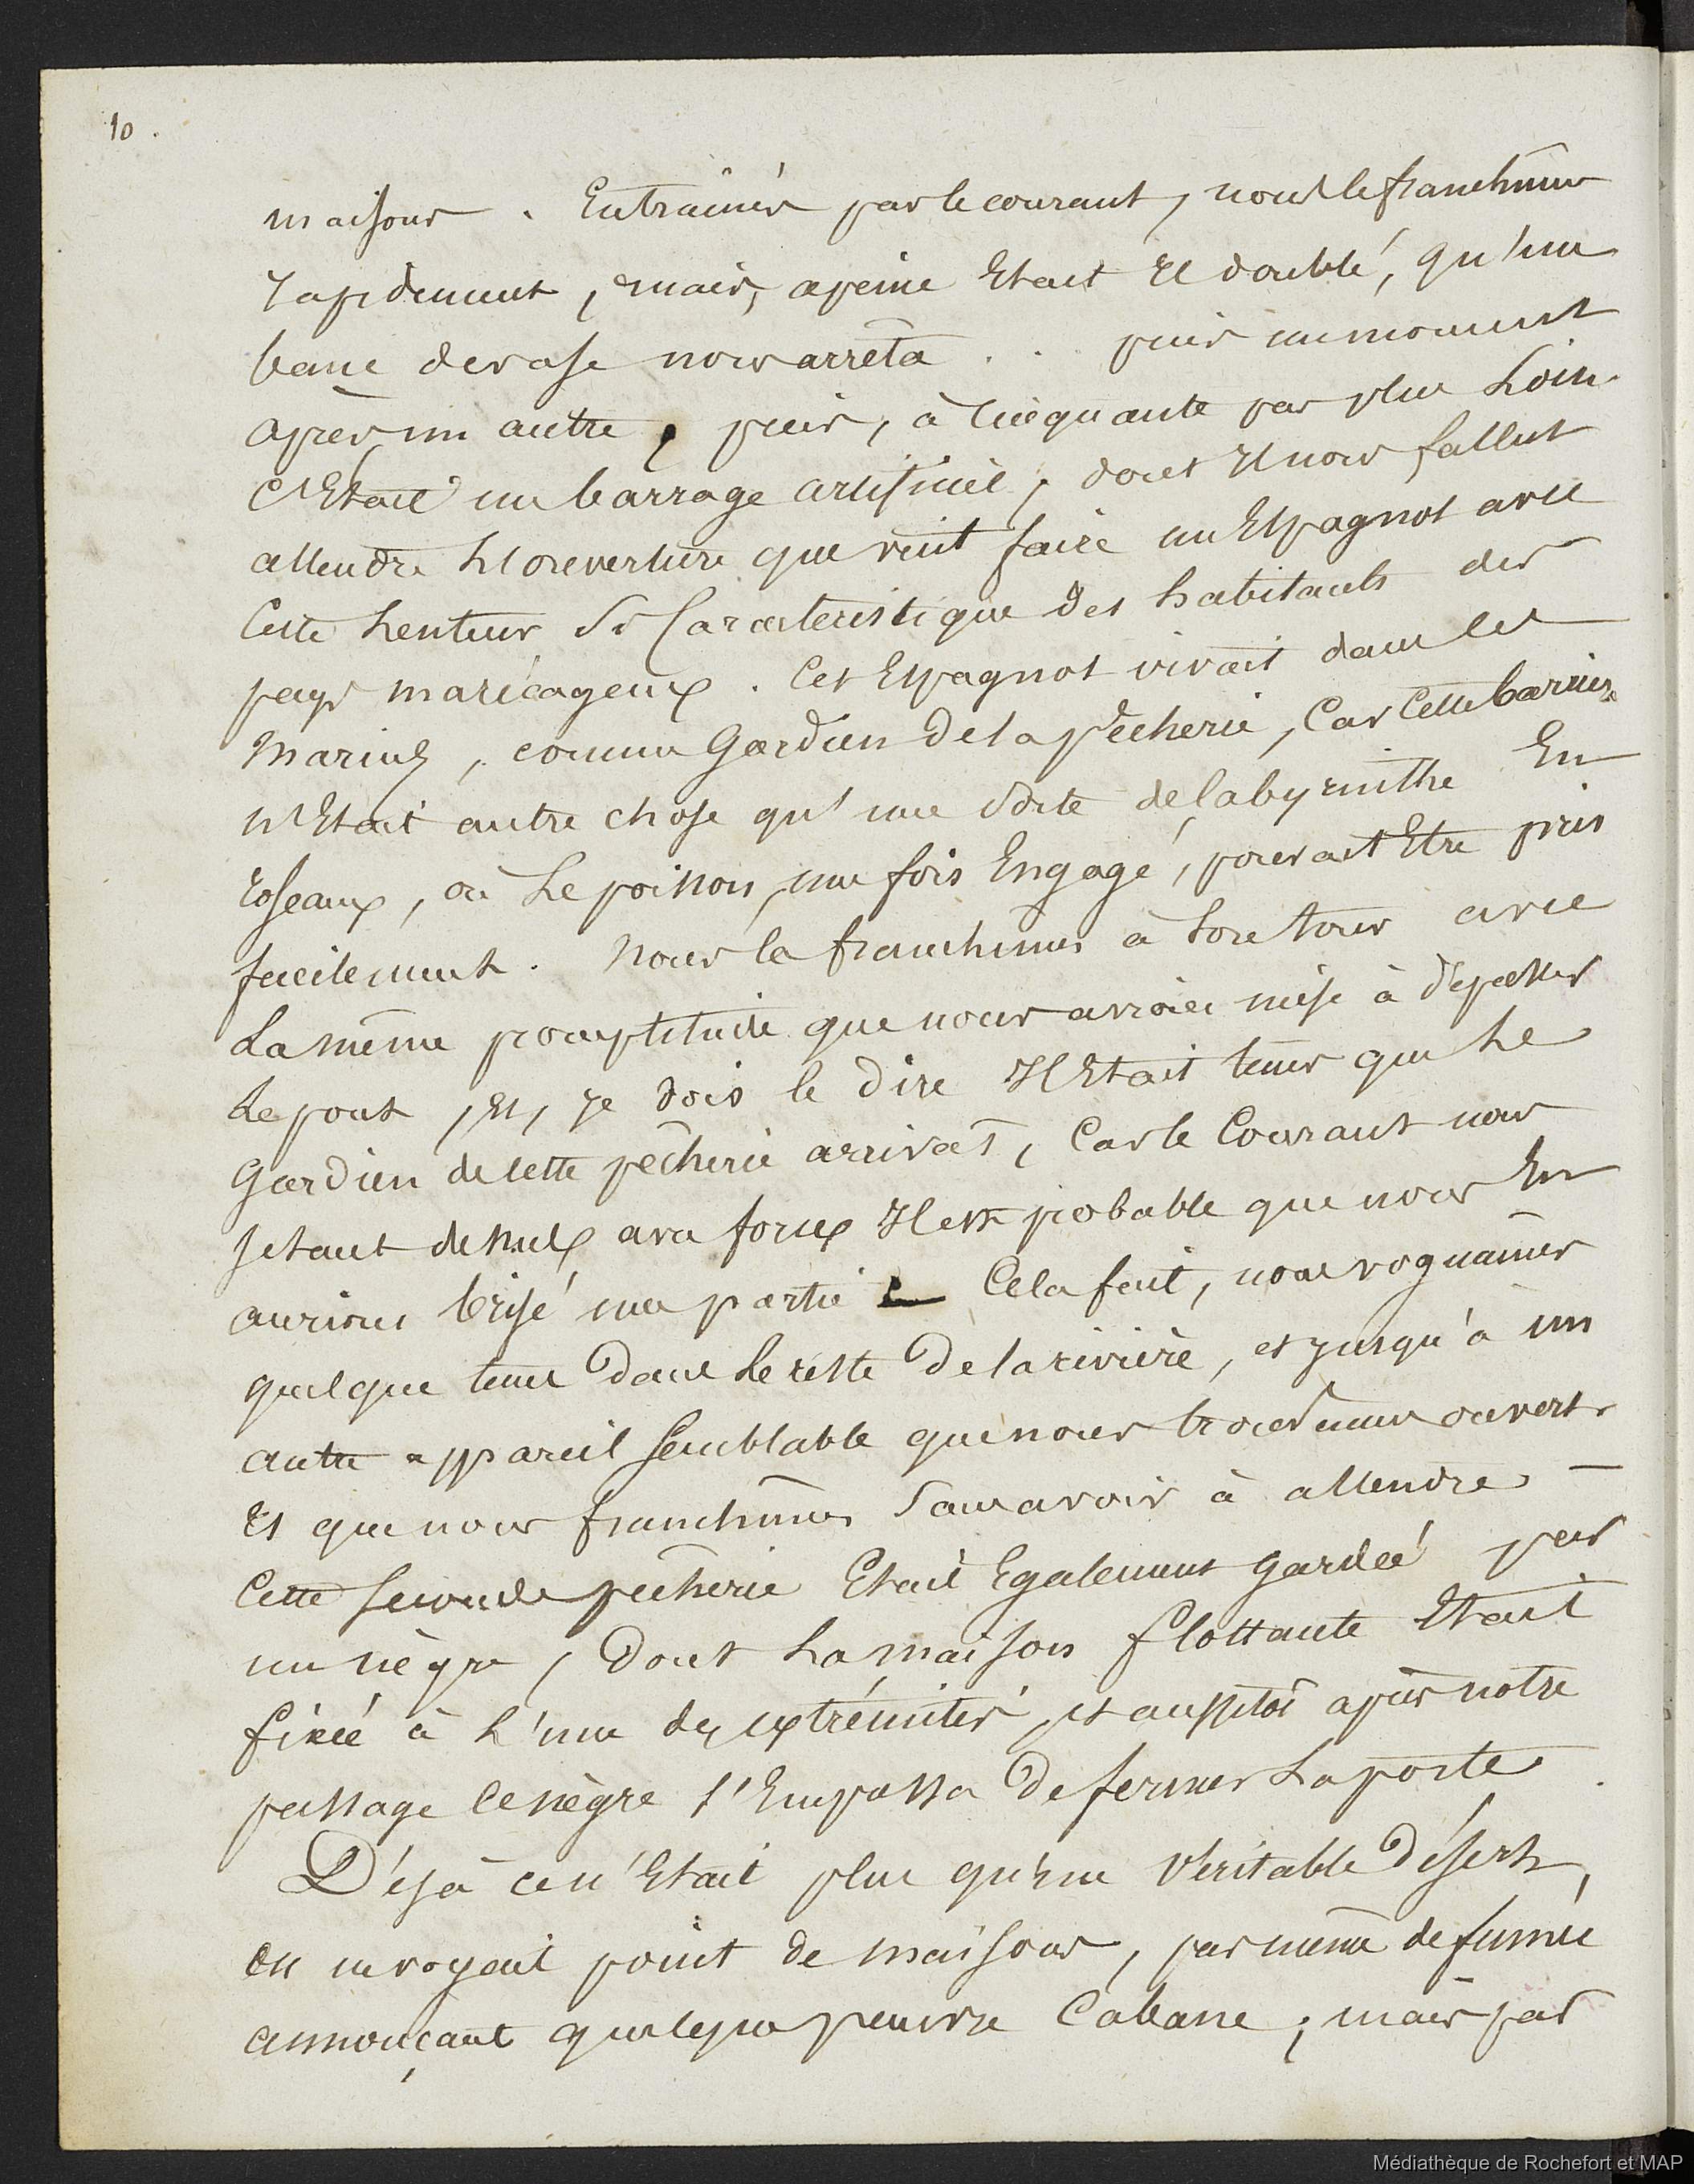 10.
maisons. Entraînés par le courant, nous le franchîmes
rapidement, mais, apeine Etait il doublé, qu'un
banc de vase nous arrêta .. puis un moment
après un autre, puis, à cinquante pas plus Loin
C'Etait un barrage artificiel, dont Il nous fallut
attendre L'ouverture que vint faire un Espagnol avec
Cette Lenteur Si Caractéristique des habitants des
pays marécageux. Cet Espagnol vivait dans les
Marais, comme Gardien de la Pêcherie, Car Cette barrière
N'Etait autre chose qu'une Sorte de labyrinthe En
roseaux, où Le poisson, une fois Engagé, pouvait Etre pris
facilement. Nous la franchimes à Son tour avec
La même promptitude que nous avions mise à dépasser
Le pont, Et, je dois le Dire Il Etait tems que Le
Gardien de cette pêcherie arrivât, Car le Courant nous
jetant dessus avec force Il est probable que nous En
aurions brisé une partie Cela fait, nous voguâmes
quelque tems Dans Le reste De la rivière, et jusqu'à un
autre appareil Semblable que nous trouvames ouvert
Et que nous franchîmes Sans avoir à attendre —
Cette Seconde pêcherie Etait Egalement gardée par
un nègre, Dont La maison flottante Etait
fixée à L'une des extrémités, et aussitôt après notre
passage le nègre s'Empressa De fermer La porte.
Déjà ce n'Etait plus qu'un Véritable Désert,
on ne voyait point de maisons, pas même de fumée
annonçant quelque pauvre Cabane, mais par
Médiathèque de Rochefort et MAP